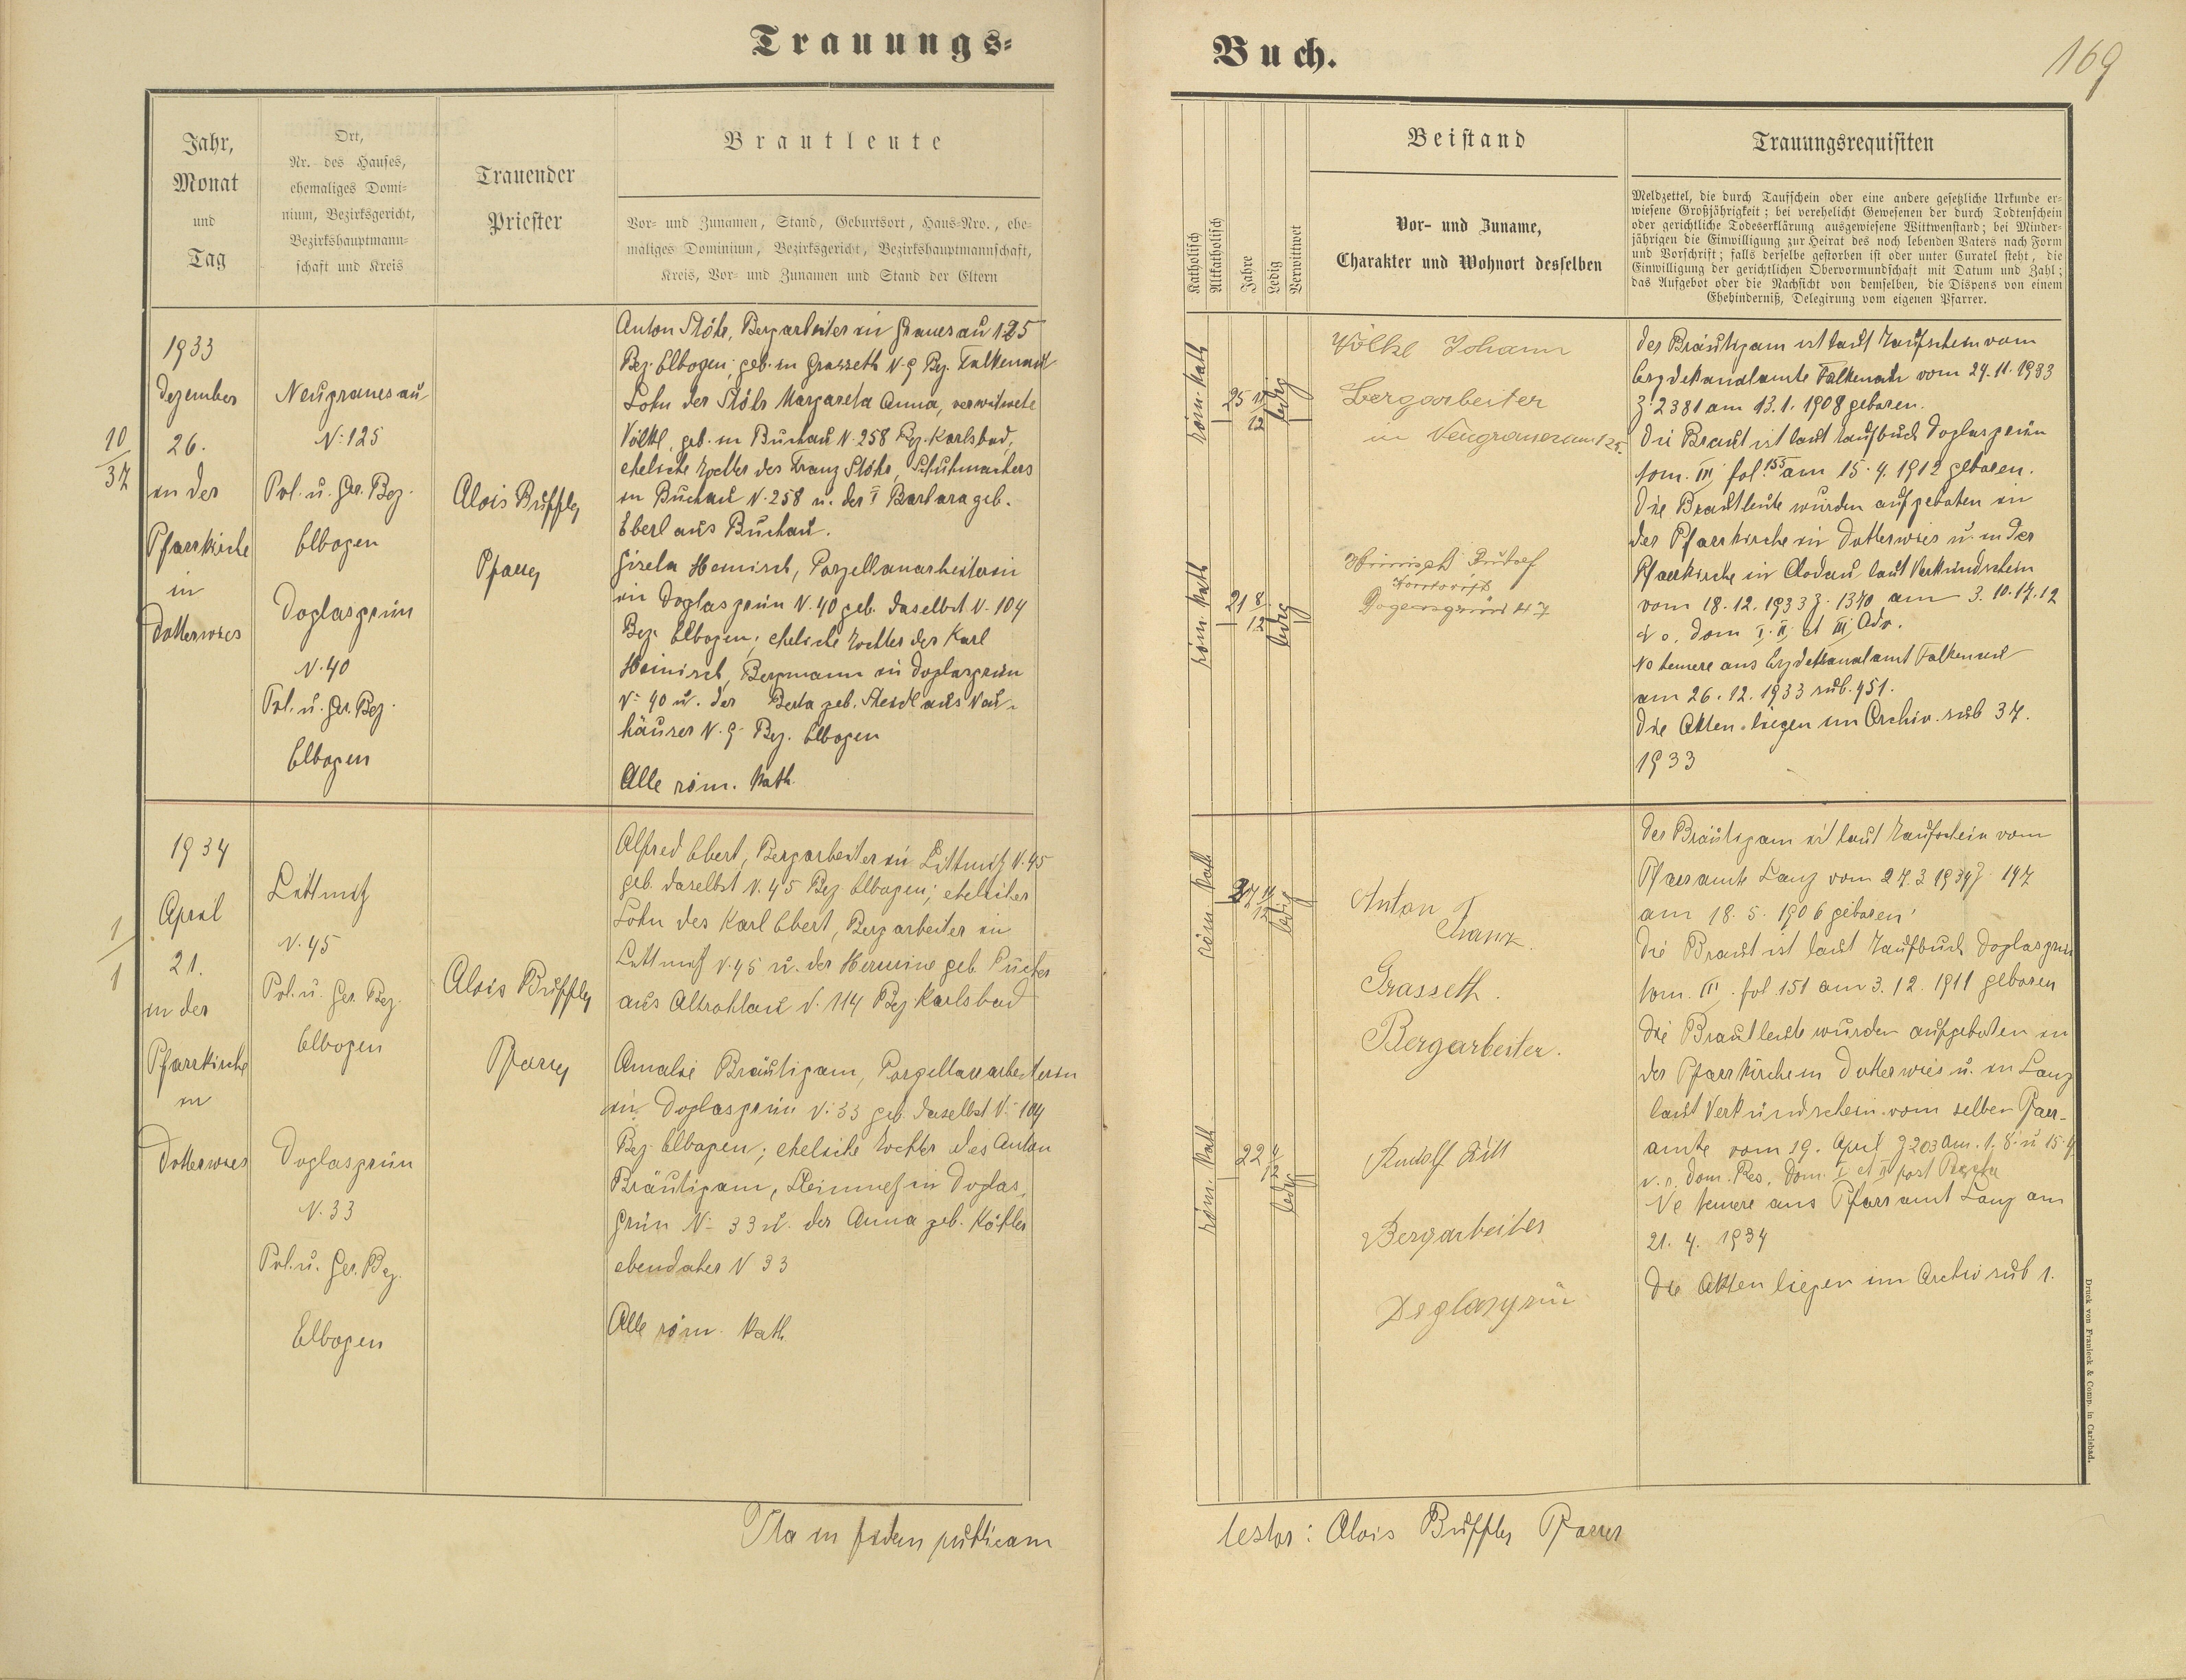 Trauungs=
Buch.
169
Jahr,
Monat
und
Tag
Ort,
Nr. des Hauses,
ehemaliges Domi-
nium, Bezirksgericht,
Bezirkshauptmann-
schaft und Kreis
Trauender
Priester
Brautleute
Vor- und Zunamen, Stand, Geburtsort, Haus-Nro., ehe-
maliges Dominium, Bezirksgericht, Bezirkshauptmannschaft,
Kreis, Vor- und Zunamen und Stand der Eltern
Katholisch
Altkatholisch
Jahre
Ledig
Verwittwet
Beistand
Vor- und Zuname,
Charakter und Wohnort desselben
Trauungsrequisiten
Meldzettel, die durch Taufschein oder eine andere gesetzliche Urkunde er-
wiesene Großjährigkeit; bei verehelicht Gewesenen der durch Todtenschein
oder gerichtliche Todeserklärung ausgewiesene Wittwenstand; bei Minder-
jährigen die Einwilligung zur Heirat des noch lebenden Vaters nach Form
und Vorschrift; falls derselbe gestorben ist oder unter Curatel steht, die
Einwilligung der gerichtlichen Obervormundschaft mit Datum und Zahl;
das Aufgebot oder die Nachsicht von demselben, die Dispens von einem
Ehehinderniß, Delegirung vom eigenen Pfarrer.
10
37
1933
Dezember
26.
in der
Pfarrkirche
in
Dotterwies
Neugranesau
N: 125
Pol. u. Ger. Bez.
Elbogen
Doglasgrün
N. 40
Pol. u. Ger. Bez.
Elbogen
Alois Buffler
Pfarrer
Anton Stöhr, Bergarbeiter in Granesau 125
Bez. Elbogen, geb. in Grasseth N. 9 Bez. Falkenau
Sohn der Stöhr Margareta Anna, verwitwete
Völkl, geb. in Buchau N. 258 Bez. Karlsbad,
eheliche Tochter des Franz Stöhr, Schuhmachers
in Buchau N. 258 u. der Barbara geb.
Eberl aus Buchau.
Gisela Heinisch, Porzellanarbeiterin
in Doglasgrün N. 40 geb. daselbst N. 104
Bez. Elbogen; eheliche Tochter des Karl
Heinisch, Bergmann in Doglasgrün
N- 40 u. der Berta geb. Steidl aus Neu-
häuser N. 9 Bez. Elbogen
Alle röm. kath.
röm. kath
25 11/12
ledig
röm. kath
21 8/12
ledig
Völkl Johann
Bergarbeiter
in Neugranesau 125.
Heinisch Rudolf
Der Bräutigam ist laut Taufschein vom
Erzdekanalamte Falkenau vom 24. 11. 1933
Z. 2381 am 13. 1. 1908 geboren.
Die Braut ist laut Taufbuch Doglasgrün
tom. III fol. 155 am 15. 4. 1912 geboren.
Die Brautleute wurden aufgeboten in
der Pfarrkirche in Dotterwies u. in der
Pfarrkirche in Chodau laut Verkündschein
vom 18. 12. 1933 Z. 1370 am 3. 10. 17. 12
d. o. Dom I. II et III Adv.
Ne temere aus Erzdekanalamt Falkenau
am 26. 12. 1933 sub. 451.
Die Akten liegen im Archiv sub 37.
1933
1
1
1934
April
21.
in der
Pfarrkirche
in
Dotterwies
Littmitz
N. 45
Pol. u. Ger. Bez.
Elbogen
Doglasgrün
N. 33
Pol. u. Ger. Bez.
Elbogen
Alois Buffler
Pfarrer
Alfred Ebert, Bergarbeiter in Littmitz N. 45
geb. daselbst N. 45 Bez. Elbogen; ehelicher
Sohn des Karl Ebert, Bergarbeiter in
Littmitz N. 45 u. der Hermine geb. Pücher
aus Altrohlau N. 114 Bez Karlsbad
Amalie Bräutigam, Porzellanarbeiterin
in Doglasgrün N. 33 geb. daselbst N- 104
Bez. Elbogen; eheliche Tochter des Anton
Bräutigam, Steinmetz in Doglas-
grün N- 33 u. der Anna geb. Köhler
ebendaher N 33
Alle röm. kath
röm. kath
27 11/12
ledig
röm. kath
22 4/12
ledig
Anton
Frank.
Grasseth.
Bergarbeiter.
Rudolf Lill
Bergarbeiter
Doglasgrün
Der Bräutigam ist laut Taufschein vom
Pfarramte Lanz vom 27. 3. 1934 Z. 197
am 18. 5. 1906 geboren
Die Braut ist laut Taufbuch Doglasgrün
tom. III. fol 151 am 3. 12. 1911 geboren
Die Brautleute wurden aufgeboten in
der Pfarrkirche in Dotterwies u. in Lanz
laut Verkündschein vom selben Pfarr-
amte vom 19. April Z 203 am 1. 8. u 15. 4
d. o. Dom. Res. Dom. I et II post Pascha
Ne temere aus Pfarramt Lanz am
21. 4. 1934
Die Akten liegen im Archiv sub 1.
Druck von Franieck & Comp. in Carlsbad.
Ita in fidem publicam
testor: Alois Buffler Pfarrer